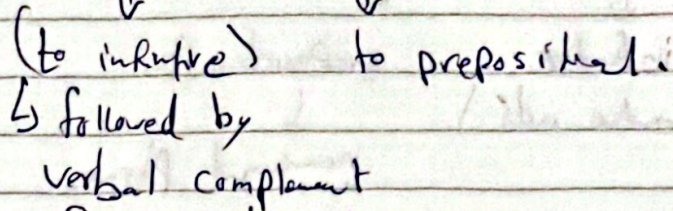 (to infinitive) to prepositional.
↳ followed by
verbal complement